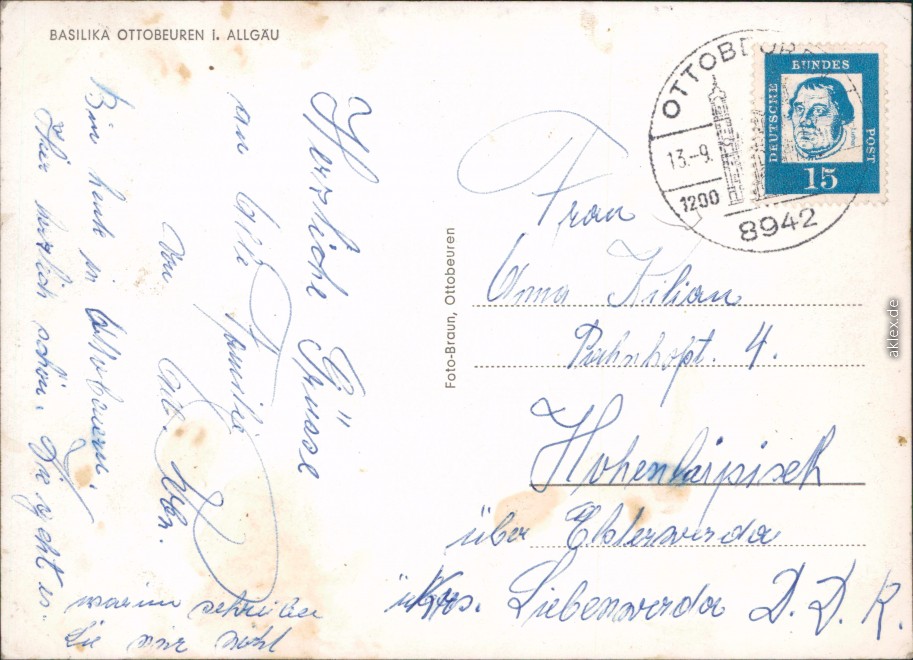 BASILIKA OTTOBEUREN I. ALLGÄU
Herzliche Grüsse
an Alle Familie
von
Bin heute in Ottobeuren.
Hier herzlich schön. Wie geht es.
warum schreiben
Sie mir nicht
Foto-Braun, Ottobeuren
OTTOBEUREN
13.-9.
1200
8942
DEUTSCHE
BUNDES
POST
15
Frau
Anna Kilian
Bahnhofst. 4.
Hohenleipisch
über Elsterwerda
Krs. Liebenwerda D.D.R.
aklex.de